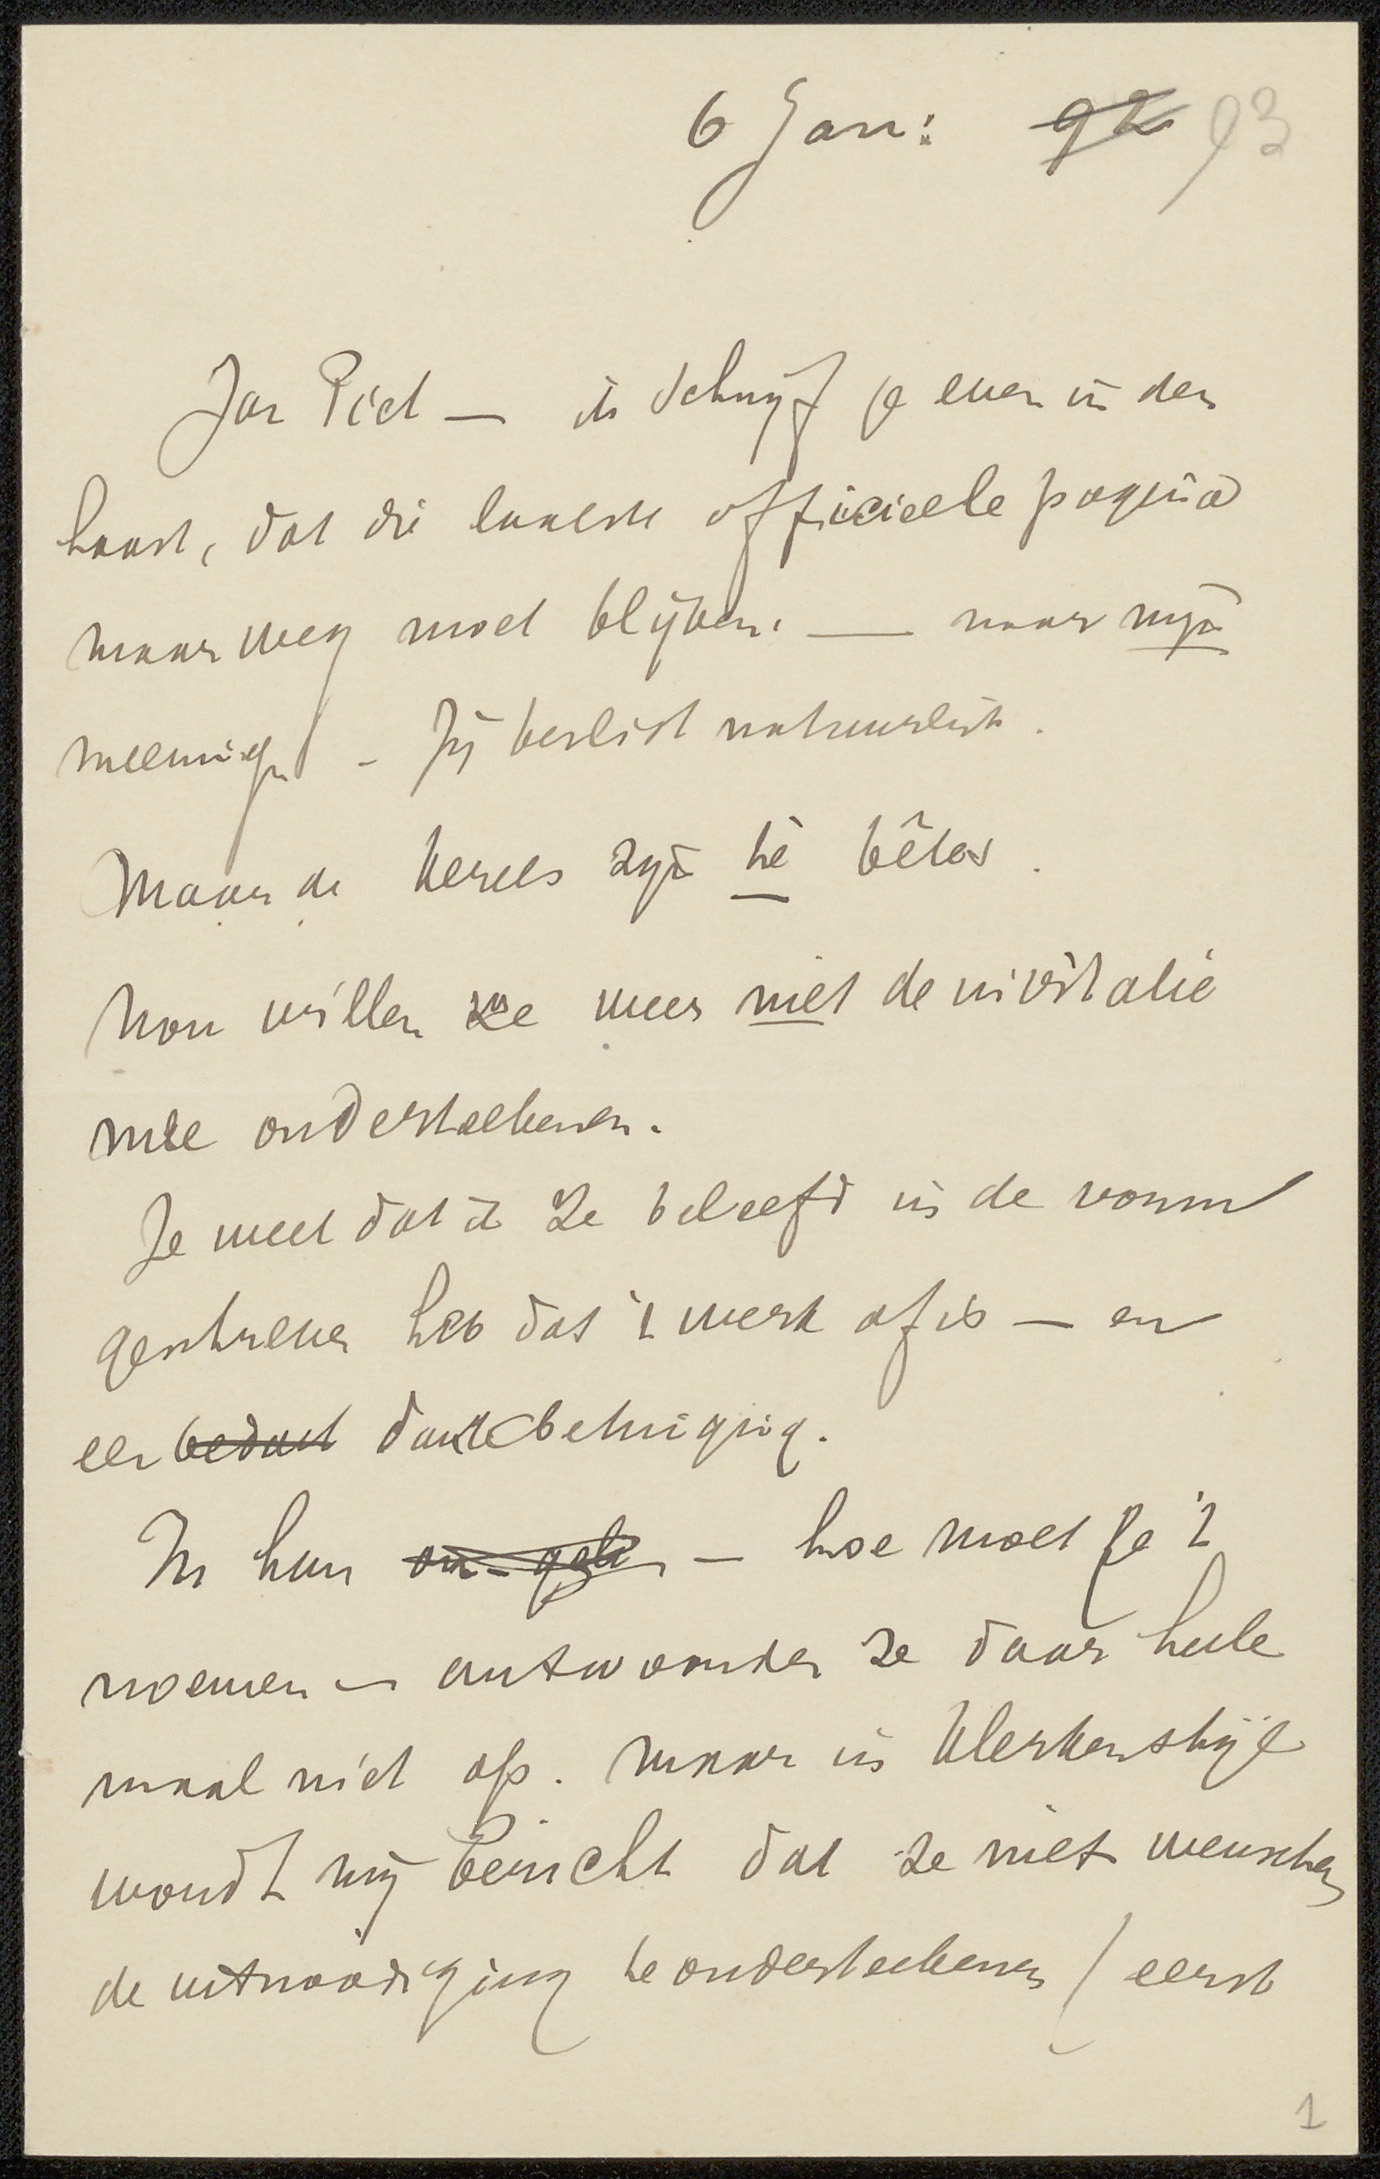 6 Jan: 92 93
Jan Piet — ik schrijf je even in den
haast, dat die laatste officieele pagina
maar weg moet blijven. — naar mijn
meening. - Jij beslist natuurlijk.
Maar de kerels zijn te bêtes.
Nou willen ze weer niet de invitatie
mee onderteekenen.
Je weet dat ik ze beleefd in de vorm
geschreven heb dat 't werk af is — en
een bedank dankbetuiging.
In hun — hoe moet je 't
noemen — antwoorden ze daar heele
maal niet op. Maar in klerkenstijl
wordt mij bericht dat ze niet wenschen
de uitnoodiging te onderteekenen / eerst
1